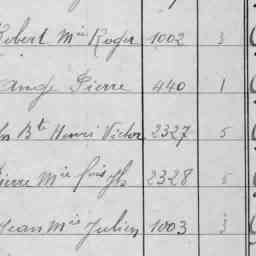 Robert Mie Roger 1002 3
Ange Pierre 440 1
Bte Henri Victor 2327 5
Pierre Mie fois fls 2328 5
Jean Mie Julien 1003 3